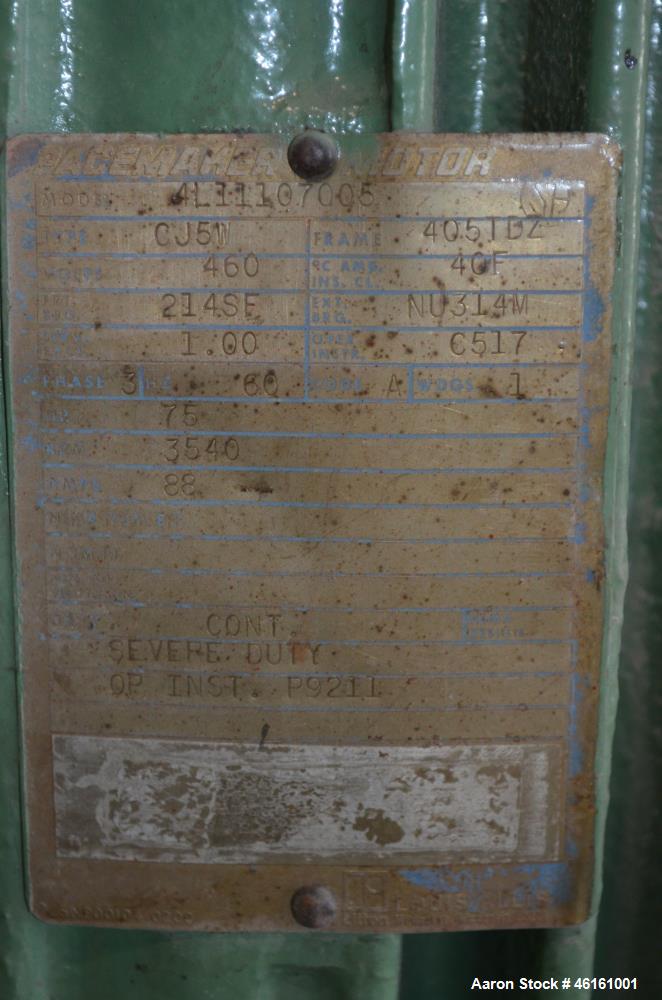 PACEMAKER MOTOR
MODEL 4L11107005
TYPE CJ5W FRAME 405TDZ
VOLTS 460 °C AMB. INS. CL. 40F
BRG. 214SF EXT. BRG. NU314M
1.00 OPER. INSTR. C517
PHASE 3 HZ 60 CODE A WDGS. 1
75
3540
AMPS 88
CONT.
SEVERE DUTY
OP INST. P9211
Aaron Stock # 46161001